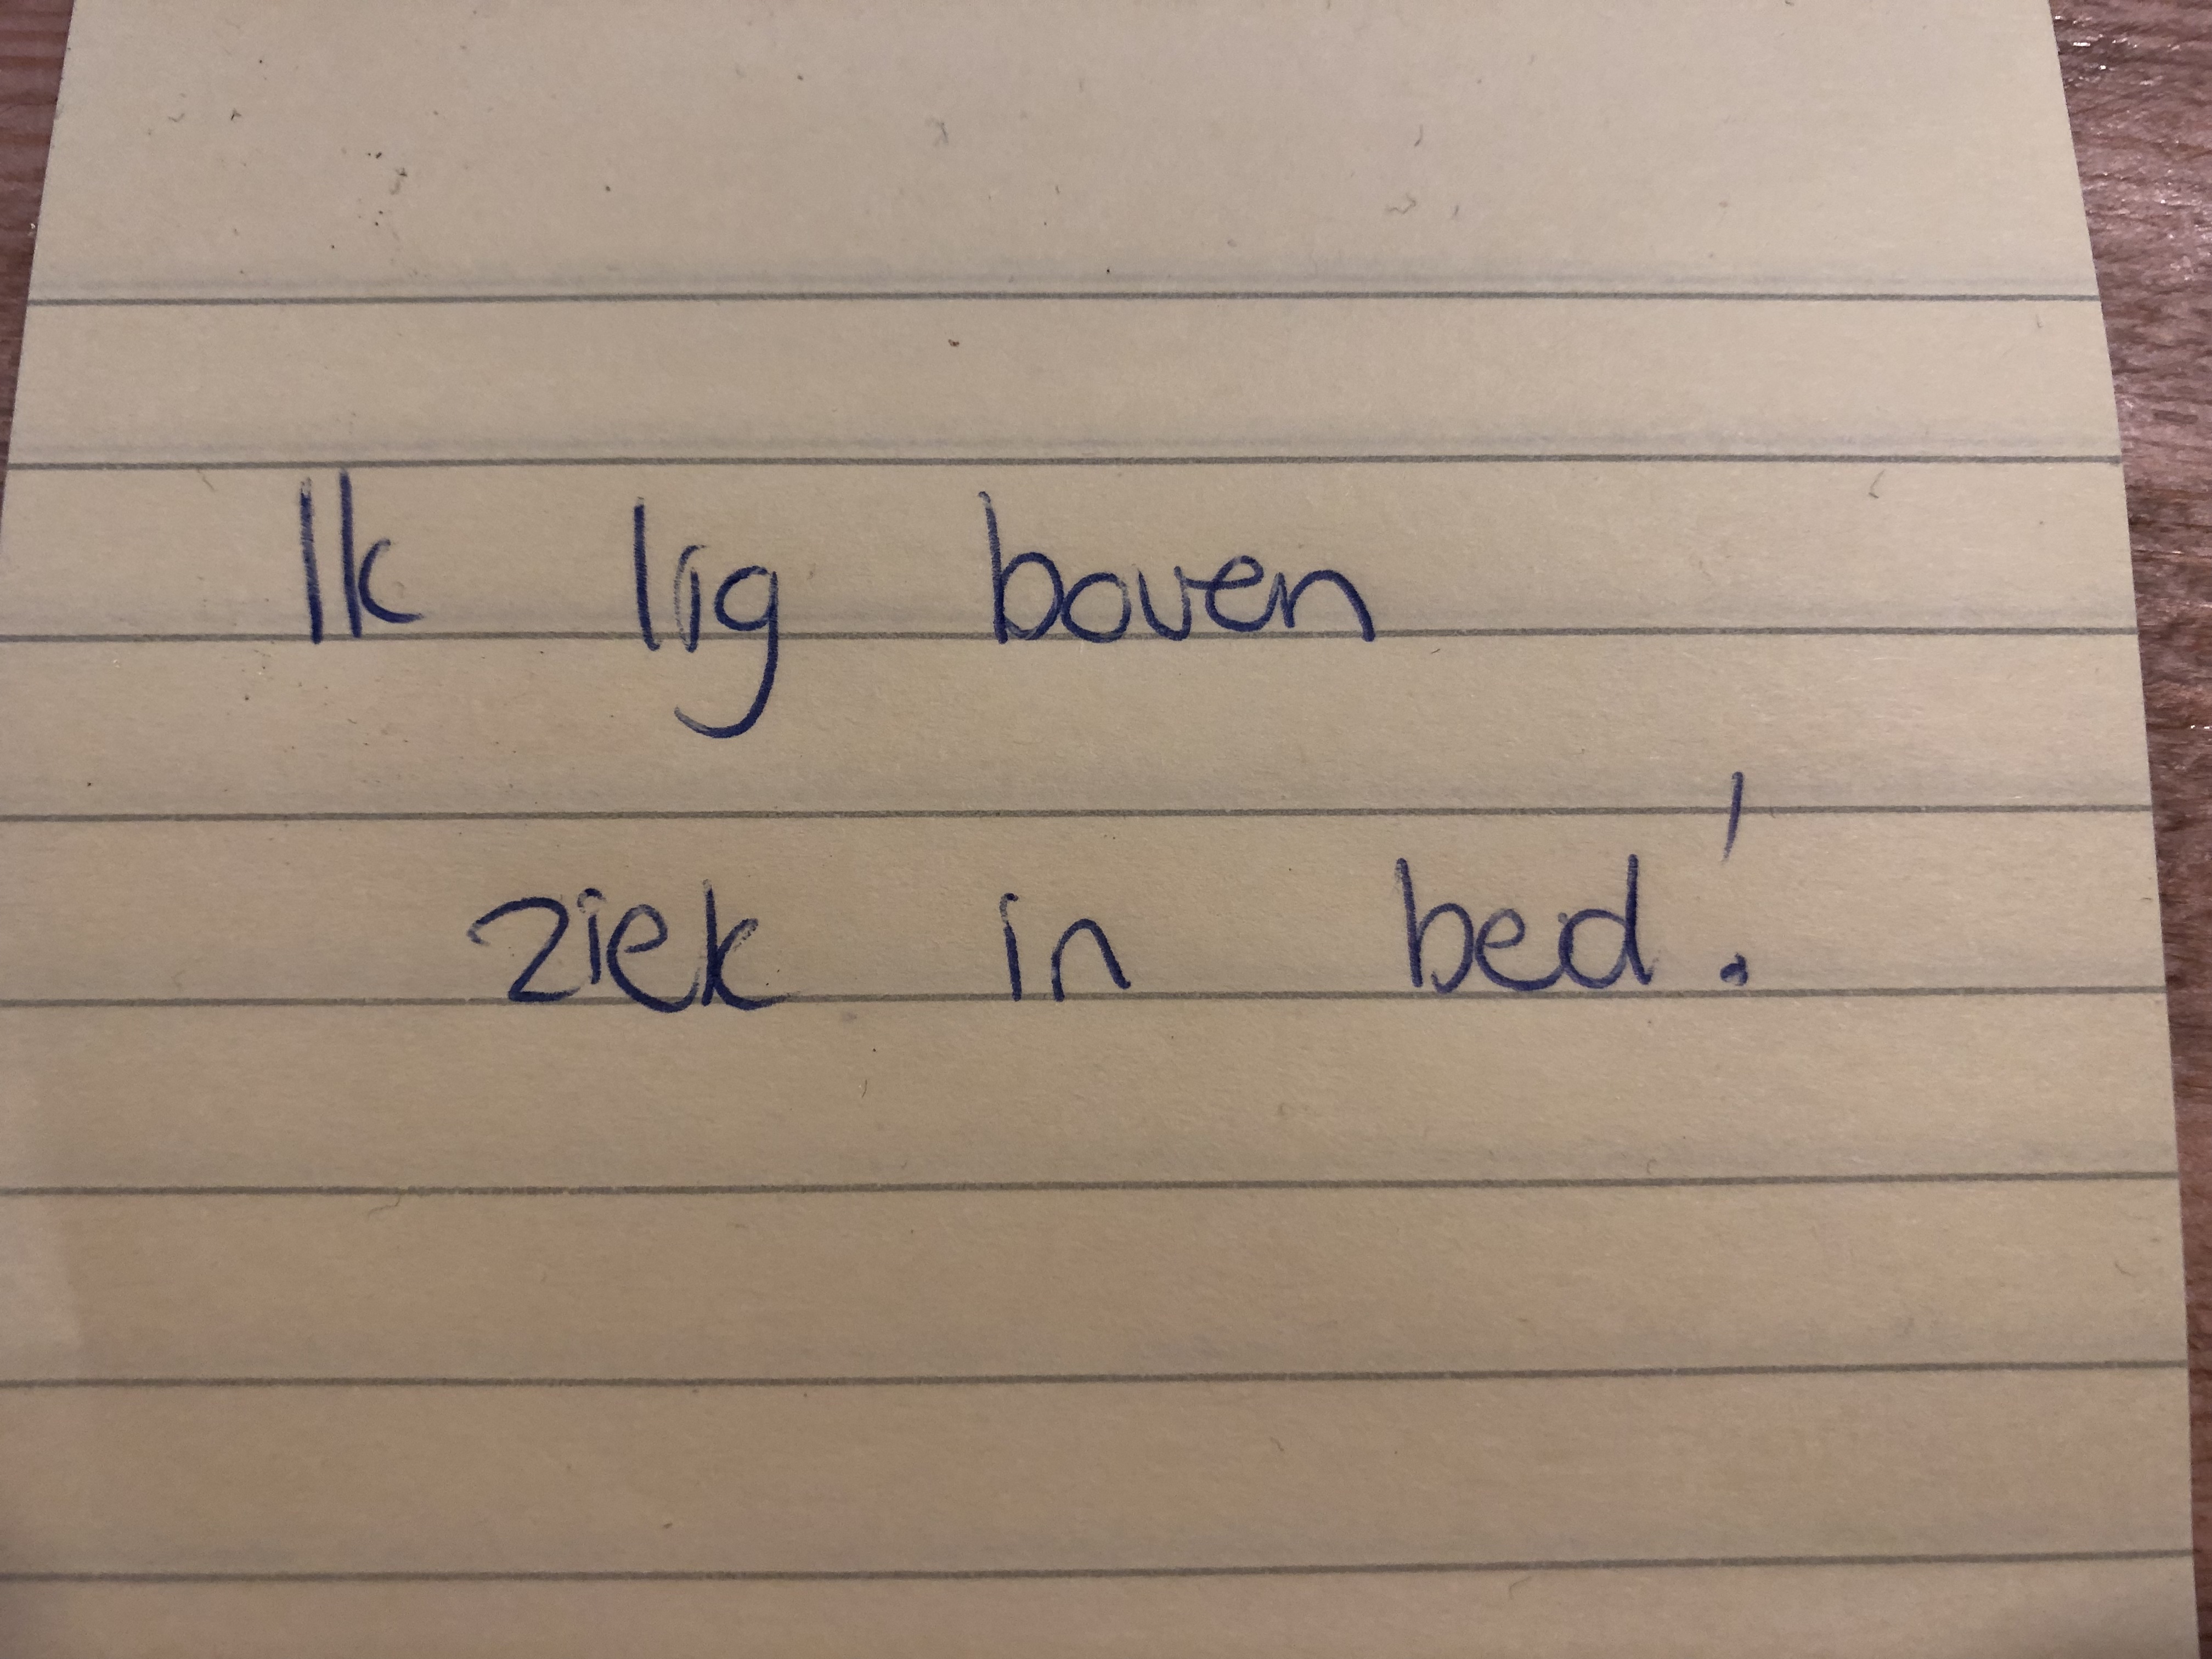 Ik lig boven
ziek in bed!